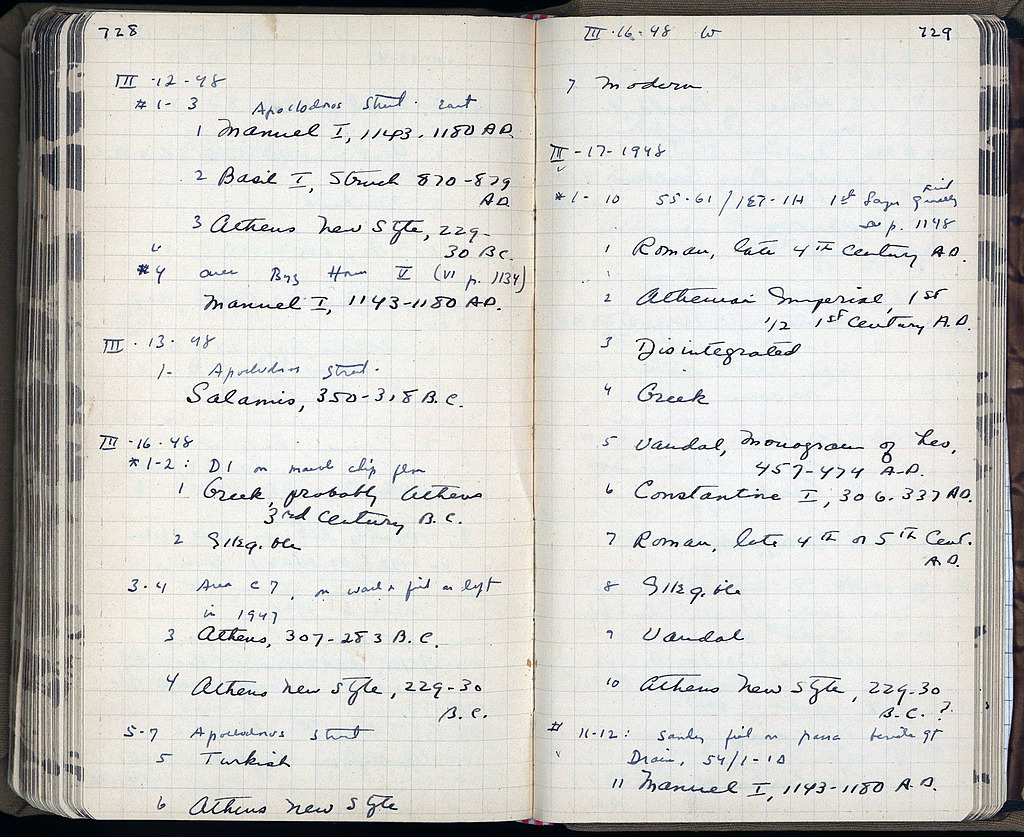 728
III · 12 - 48
# 1 - 3 Apollodoros Street · east
1 Manuel I, 1143 - 1180 A.D.
2 Basil I, Struck 870 - 879
A.D.
3 Athens New Style, 229 -
30 B.C.
#4 over Byz House V (VI p. 1134)
Manuel I, 1143 - 1180 A.D.
III · 13 · 48
1- Apollodoros Street ·
Salamis, 350 - 318 B.C.
III - 16 · 48
# 1-2 : D1 on marble chip
1 Greek, probably Athens
3rd Century B.C.
2 Illegible
3 - 4 Area C 7, on as left
in 1947
3 Athens, 307 - 283 B.C.
4 Athens New Style, 229-30
B.C.
5 - 7 Apollodoros Street
5 Turkish
6 Athens New Style
III · 16 · 48 W
729
7 Modern
III - 17 - 1948
# 1 - 10 SS · 61 / 1st Layer
p. 1148
1 Roman, late 4th Century A.D.
2 Athenian Imperial, 1st
1/2 1st Century A.D.
3 Disintegrated
4 Greek
5 Vandal, Monogram of Leo,
457 - 474 A.D.
6 Constantine I, 306 - 337 A.D.
7 Roman, late 4th or 5th Cent.
A.D.
8 Illegible
9 Vandal
10 Athens New Style, 229-30
B.C. ?
# 11-12 : Sandy fill on beside gt
Drain,
11 Manuel I, 1143 - 1180 A.D.